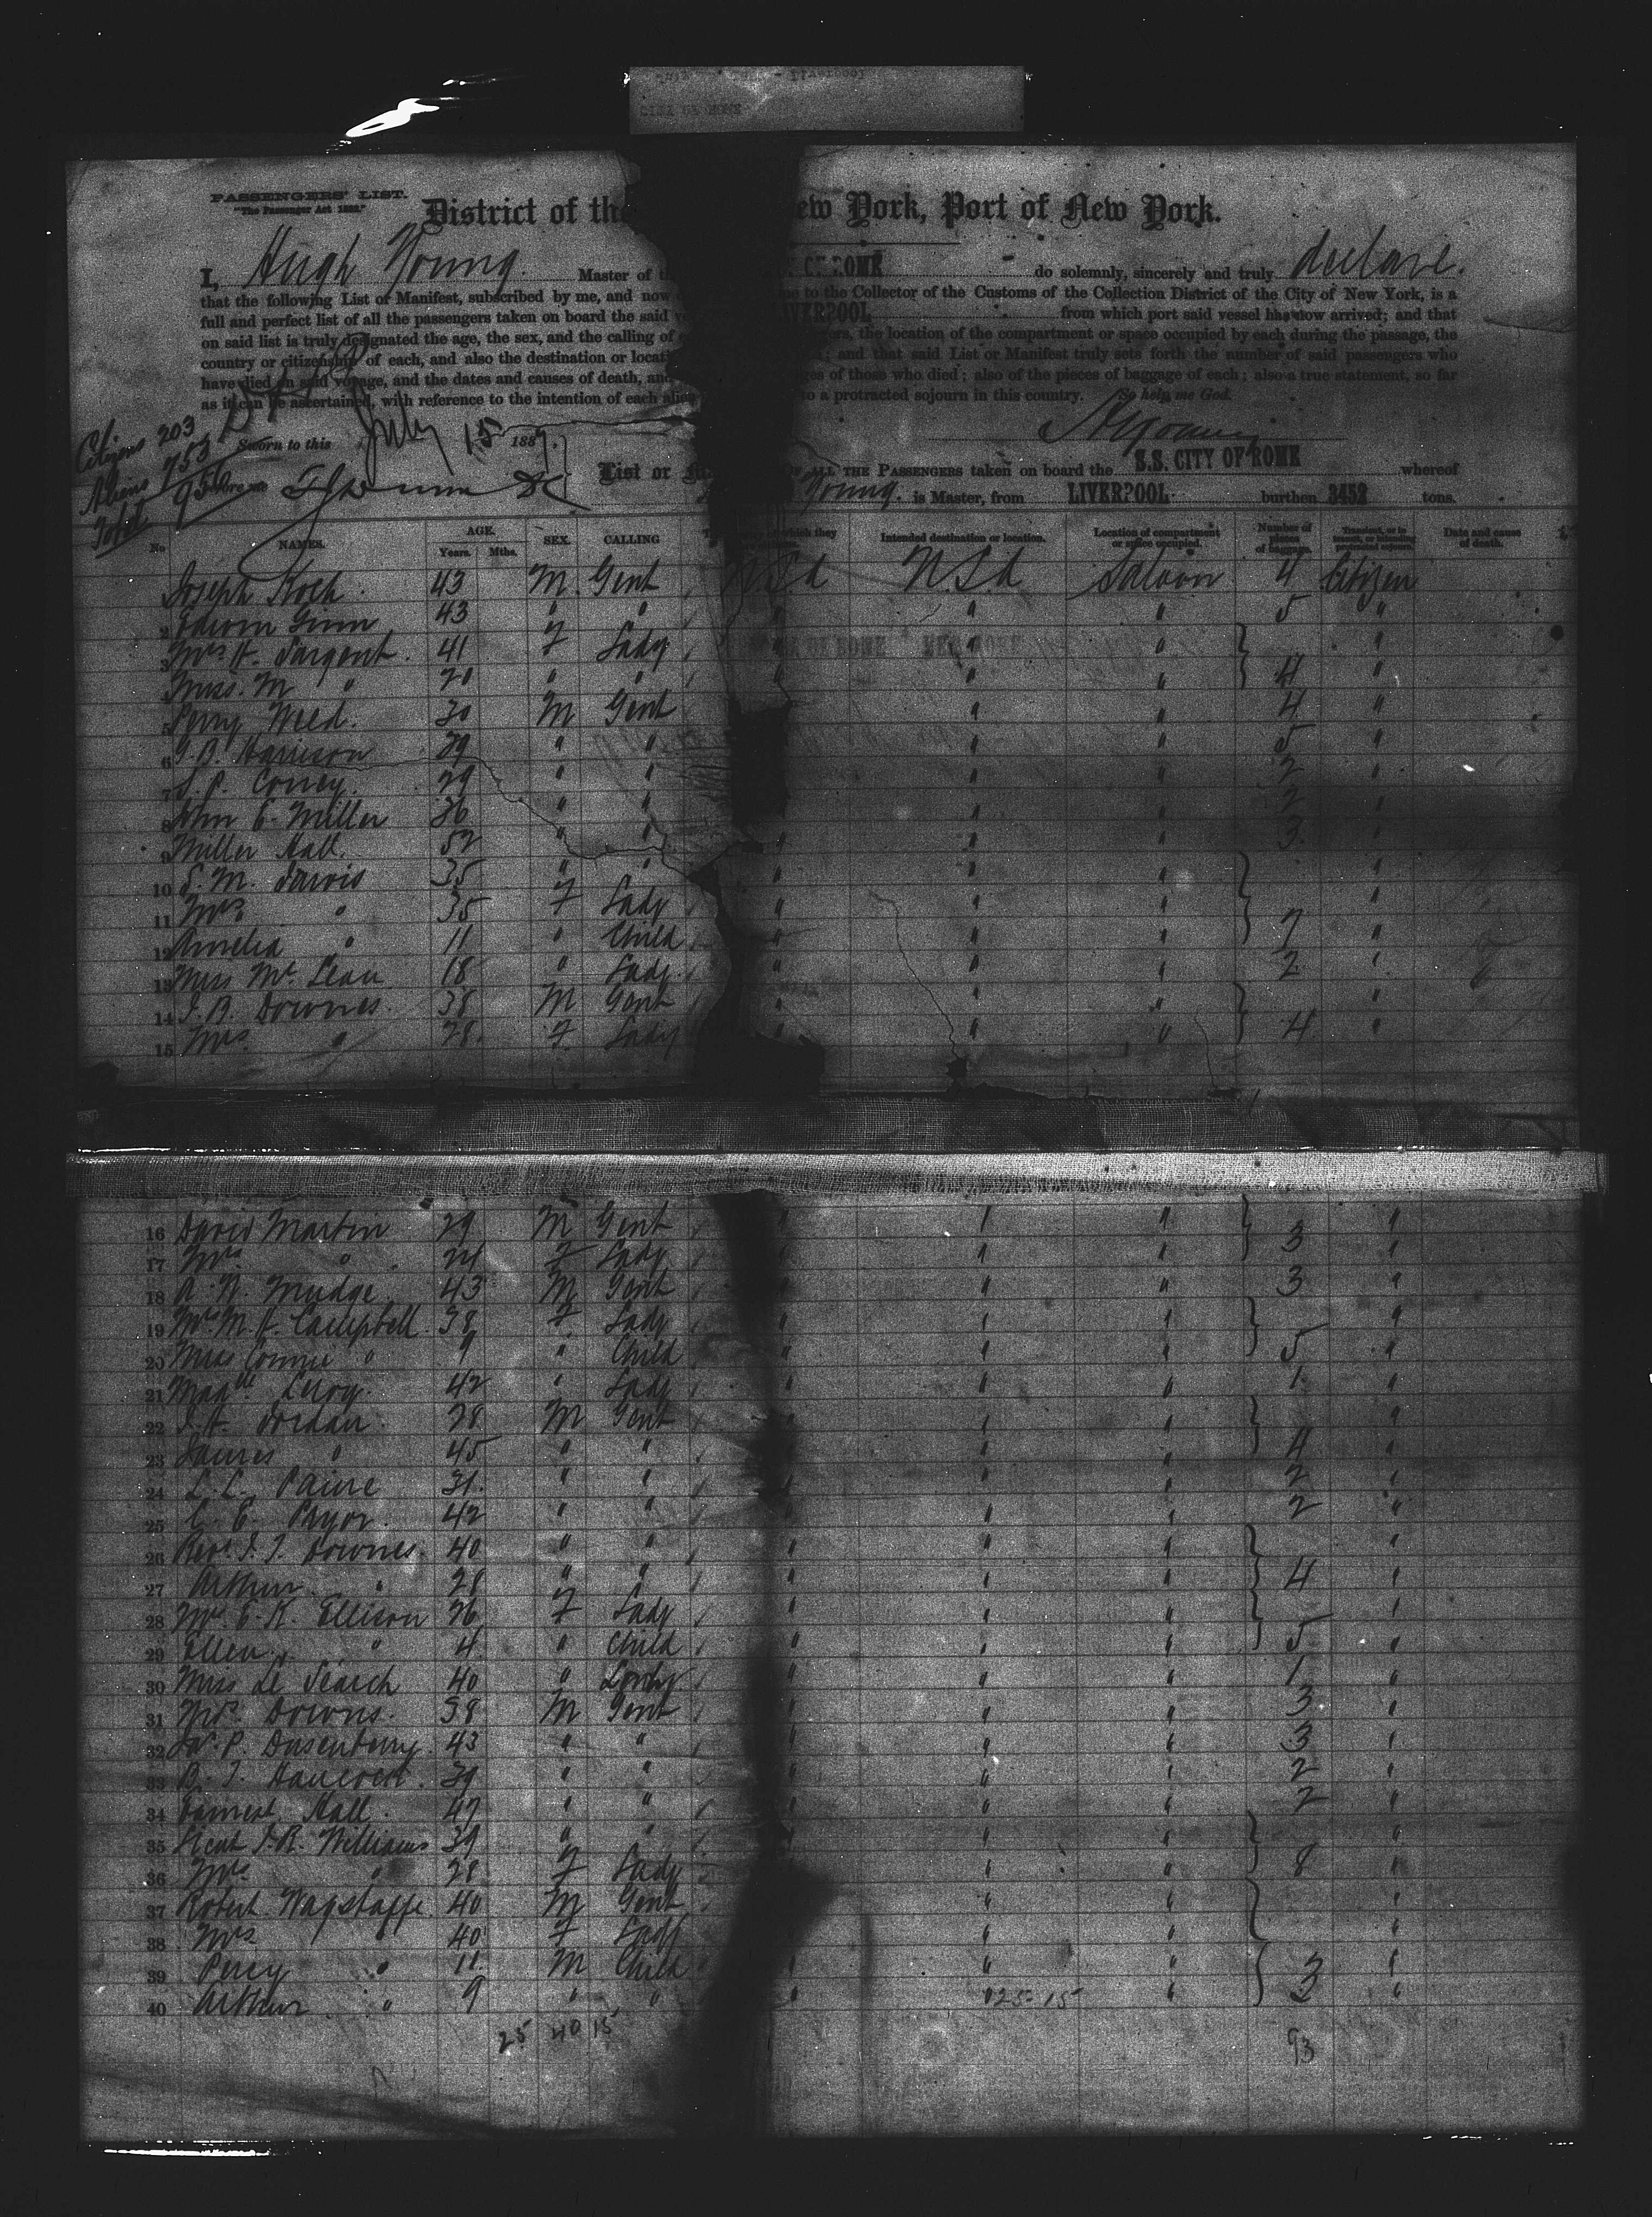 PASSENGERS' LIST.
"The Passenger Act 1882."
District of the ew York, Port of New York.
I, Hugh Young. Master of ROME do solemnly, sincerely and truly declare.
that the following List or Manifest, subscribed by me, and now to the Collector of the Customs of the Collection District of the City of New York, is a
full and perfect list of all the passengers taken on board the said LIVERPOOL from which port said vessel has now arrived; and that
on said list is truly designated the age, the sex, and the calling of the location of the compartment or space occupied by each during the passage, the
country or citizenship of each, and also the destination or locati and that said List or Manifest truly sets forth the number of said passengers who
have died on said voyage, and the dates and causes of death, and of those who died; also of the pieces of baggage of each; also a true statement, so far
as it can be ascertained, with reference to the intention of each alien to a protracted sojourn in this country. So help me God.
Citizens 203
Aliens 753
Total 956
Sworn to this July 15 1887.
before me
HYoung
List or OF ALL THE PASSENGERS taken on board the S.S. CITY OF ROME whereof
Young. is Master, from LIVERPOOL burthen 3452 tons.
No NAMES. AGE. Years. Mths. SEX. CALLING which they Intended destination or location. Location of compartment or space occupied. Number of pieces of baggage. Transient, or in transit, or intending protracted sojourn. Date and cause of death.
Joseph Koch 43 M Gent U.S.A U.S.A Saloon 4 Citizen
2 Edwin Ginn 43 " " " " 5 "
3 Mrs H. Sargent. 41 F Lady " " " "
Miss. M " 20 " " " " " 4 "
5 Perry Weed. 30 M Gent " " " 4 "
6 Harrison 39 " " " " " 5 "
7 S. P. Correy. 29 " " " " " 2 "
8 John E. Miller 36 " " " " " 2 "
9 Miller Hall. 52 " " " " " 3 "
10 S. M. Jarvis 35 " " " " " "
11 Mrs. " 35 F Lady " " " 7 "
12 Amelia " 11 " Child " " " "
13 Miss McLean 18 " Lady " " " 2 "
14 Downes. 38 M Gent " " " "
15 Mrs. " 28. F Lady " " " 4 "
16 David Martin 29 M Gent " " " "
17 Mrs " 24 F Lady " " " 3 "
18 A. N. Mudge. 43 M Gent " " " 3 "
19 Mrs M. H. Campbell. 38 F Lady " " " "
20 Miss Connie " 9 " Child " " " 5 "
21 Madlle Leroy. 42 " Lady " " " 1 "
22 J. H. Jordan 28 M Gent " " " "
23 James " 45 " " " " " 4 "
24 L. L. Paine 31. " " " " " 2 "
25 C. E. Pryor. 42 " " " " " 2 "
26 Revd Downes. 40 " " " " " "
27 Arthur " 28 " " " " " 4 "
28 Mrs E. K. Ellison 26 F Lady " " " "
29 Ellen " 4 " Child " " " 5 "
30 Miss Le Search 40 " Lady " " " 1 "
31 Downs. 38 M Gent " " " 3 "
32 P. Dusenberry. 43 " " " " " 3 "
33 Hancock. 39 " " " " " 2 "
34 Earnest Hall. 42 " " " " " 2 "
35 Lieut J. R. Williams 39 " " " " " "
36 Mrs " 28 F Lady " " " 8 "
37 Robert Wagstaffe. 40 M Gent " " " "
38 Mrs " 40 F Lady " " " "
39 Percy " 11. M Child " " " 3 "
40 Arthur " 9 " " " " " "
25 15
25 40 15
93